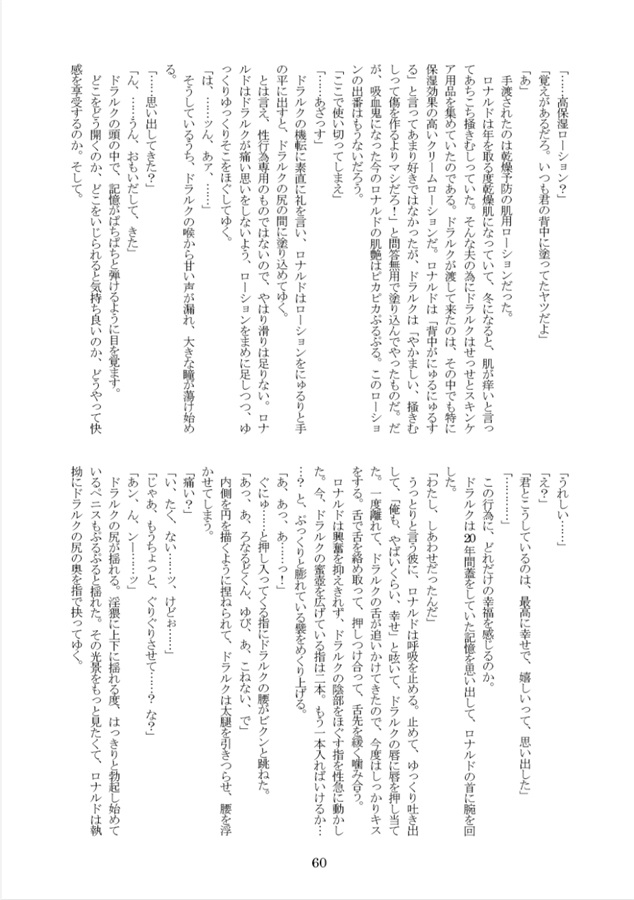 「……高保湿ローション？」
「覚えがあるだろ。いつも君の背中に塗ってたヤツだよ」
「あ」
　手渡されたのは乾燥予防の肌用ローションだった。
　ロナルドは年を取る度乾燥肌になっていて、冬になると、肌が痒いと言っ
てあちこち掻きむしっていた。そんな夫の為にドラルクはせっせとスキンケ
ア用品を集めていたのである。ドラルクが渡して来たのは、その中でも特に
保湿効果の高いクリームローションだ。ロナルドは「背中がにゅるにゅるす
る」と言ってあまり好きではなかったが、ドラルクは「やかましい、掻きむ
しって傷を作るよりマシだろ！」と問答無用で塗り込んでやったものだ。だ
が、吸血鬼になった今のロナルドの肌艶はピカピカぷるぷる。このローショ
ンの出番はもうないだろう。
「ここで使い切ってしまえ」
「……あざっす」
　ドラルクの機転に素直に礼を言い、ロナルドはローションをにゅるりと手
の平に出すと、ドラルクの尻の間に塗り込めてゆく。
　とは言え、性行為専用のものではないので、やはり滑りは足りない。ロナ
ルドはドラルクが痛い思いをしないよう、ローションをまめに足しつつ、ゆ
っくりゆっくりそこをほぐしてゆく。
「は、……ッん、あァ、……」
　そうしているうち、ドラルクの喉から甘い声が漏れ、大きな瞳が蕩け始め
る。
「……思い出してきた？」
「ん、……うん、おもいだして、きた」
　ドラルクの頭の中で、記憶がぱちぱちと弾けるように目を覚ます。
　どこをどう開くのか、どこをいじられると気持ち良いのか、どうやって快
感を享受するのか。そして。
「うれしい……」
「え？」
「君とこうしているのは、最高に幸せで、嬉しいって、思い出した」
「…………」
　この行為に、どれだけの幸福を感じるのか。
　ドラルクは20年間蓋をしていた記憶を思い出して、ロナルドの首に腕を回
した。
「わたし、しあわせだったんだ」
　うっとりと言う彼に、ロナルドは呼吸を止める。止めて、ゆっくり吐き出
して、「俺も、やばいくらい、幸せ」と呟いて、ドラルクの唇に唇を押し当て
た。一度離れて、ドラルクの舌が追いかけてきたので、今度はしっかりキス
をする。舌で舌を絡め取って、押しつけ合って、舌先を緩く噛み合う。
　ロナルドは興奮を抑えきれず、ドラルクの陰部をほぐす指を性急に動かし
た。今、ドラルクの蜜壺を広げている指は二本。もう一本入ればいけるか…
…？と、ぷっくりと膨れている襞をめくり上げる。
「あ、あっ、あ……っ！」
　ぐにゅ……と押し入ってくる指にドラルクの腰がビクンと跳ねた。
「あっ、あ、ろなるどくん、ゆび、あ、こねない、で」
　内側を円を描くように捏ねられて、ドラルクは太腿を引きつらせ、腰を浮
かせてしまう。
「痛い？」
「い、たく、ない……ッ、けどぉ……」
「じゃあ、もうちょっと、ぐりぐりさせて……？　な？」
「あン、ん、ンー……ッ」
　ドラルクの尻が揺れる。淫猥に上下に揺れる度、はっきりと勃起し始めて
いるペニスもぷるぷると揺れた。その光景をもっと見たくて、ロナルドは執
拗にドラルクの尻の奥を指で抉ってゆく。
60